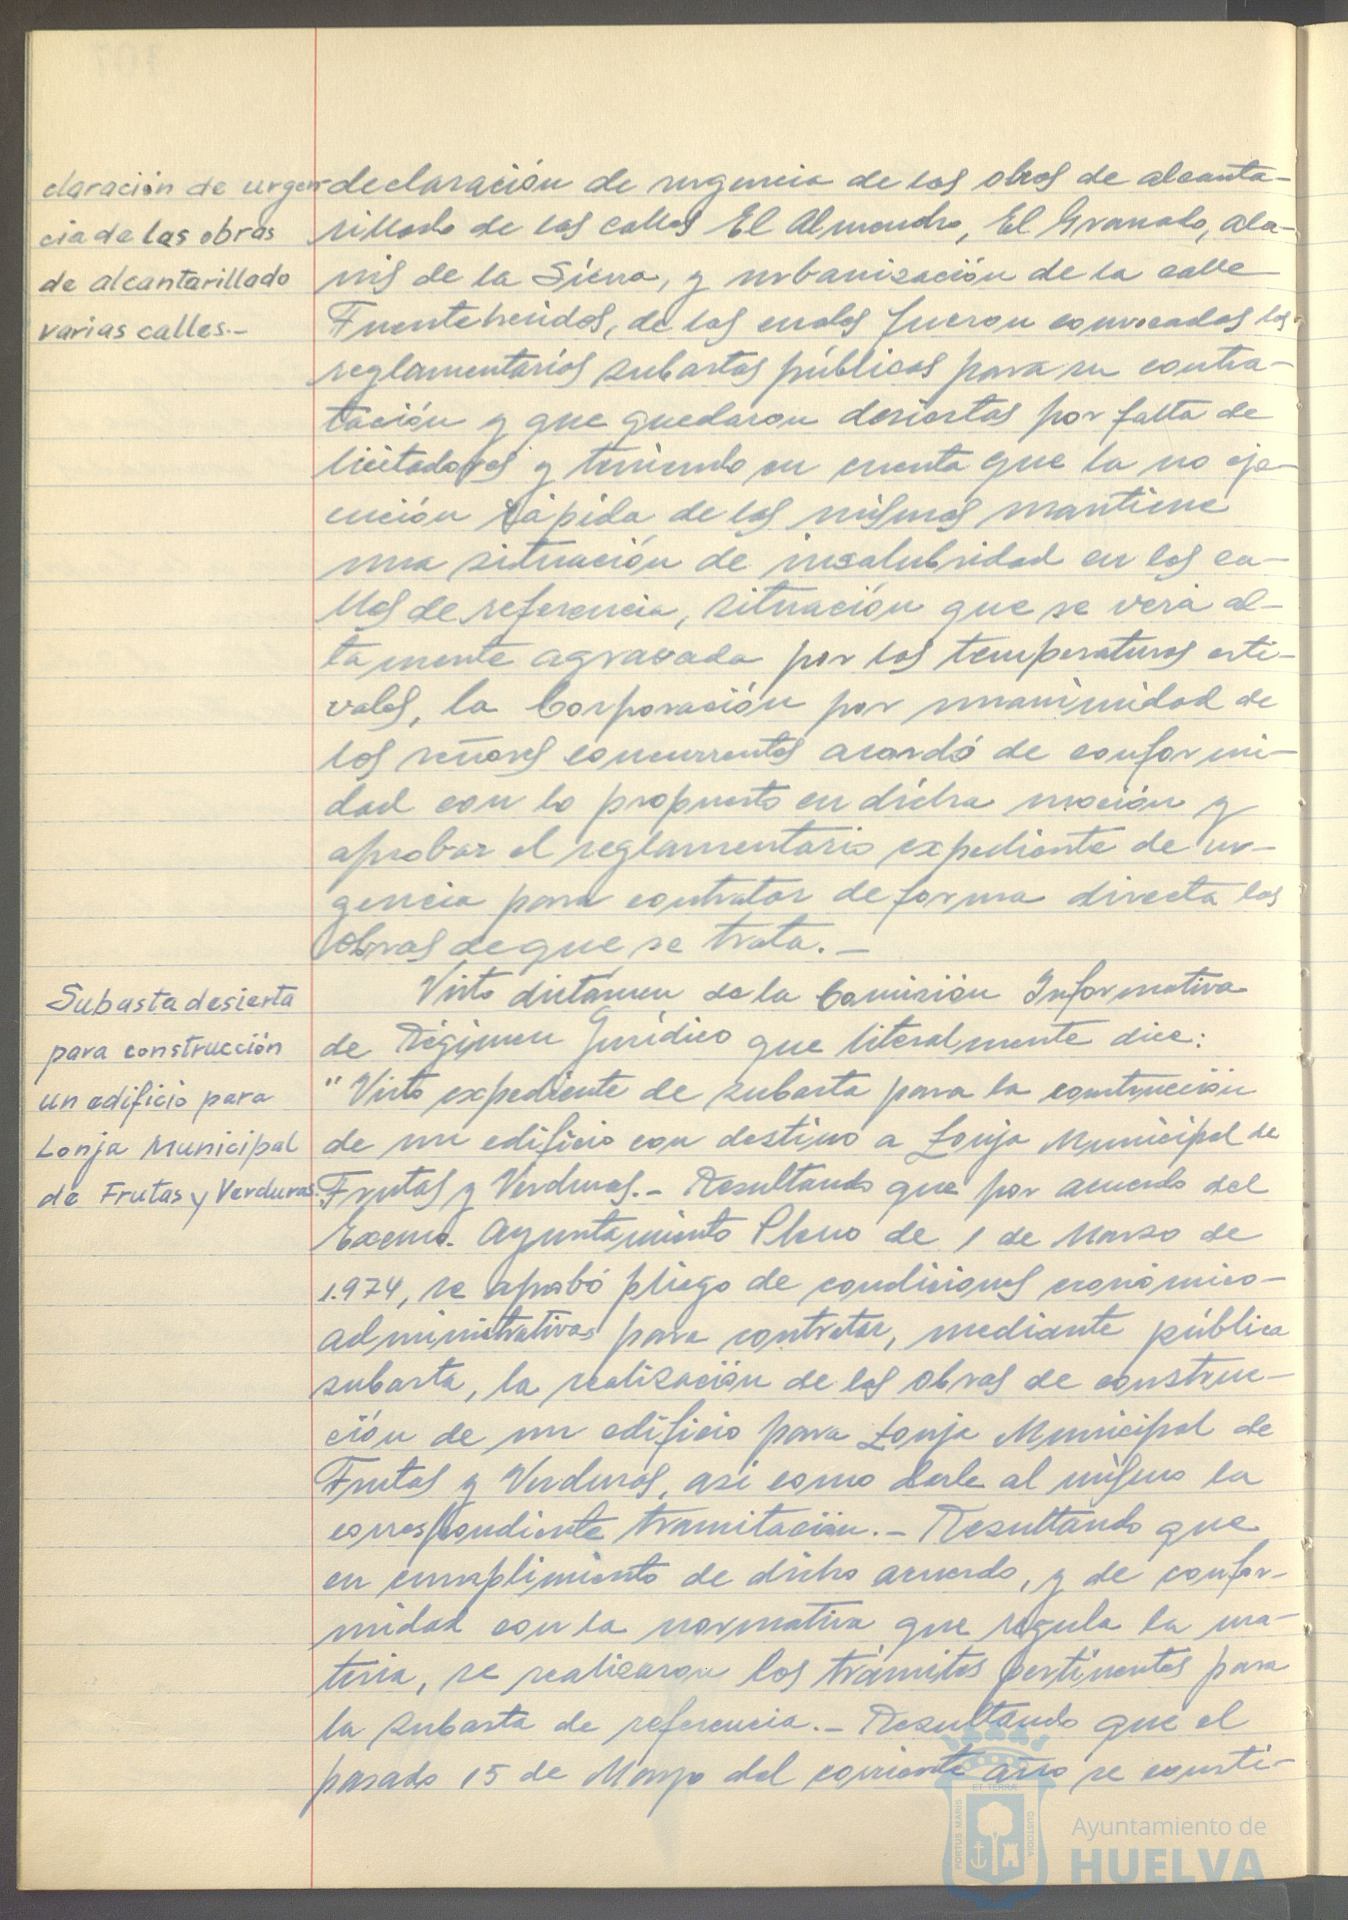 claración de urgen-
cia de las obras
de alcantarillado
varias calles.-
declaración de urgencia de las obras de alcanta-
rillado de las calles El Almendro, El Granado, Ala-
nis de la Sierra, y urbanización de la calle
Fuenteheridos, de las cuales fueron convocadas las
reglamentarias subastas públicas para su contra-
tación y que quedaron desiertas por falta de
licitadores y teniendo en cuenta que la no eje-
cución rápida de las mismas mantiene
una situación de insalubridad en las ca-
lles de referencia, situación que se verá al-
tamente agravada por las temperaturas esti-
vales, la Corporación por unanimidad de
los señores concurrentes acordó de conformi-
dad con lo propuesto en dicha moción y
aprobar el reglamentario expediente de ur-
gencia para contratar de forma directa las
obras de que se trata.-
Subasta desierta
para construcción
un edificio para
Lonja Municipal
de Frutas y Verduras.
Visto dictámen de la Comisión Informativa
de Régimen Jurídico que literalmente dice:
"Visto expediente de subasta para la construcción
de un edificio con destino a Lonja Municipal de
Frutas y Verduras.- Resultando que por acuerdo del
Excmo. Ayuntamiento Pleno de 1 de Marzo de
1.974, se aprobó pliego de condiciones económico-
administrativas para contratar, mediante pública
subasta, la realización de las obras de construc-
ción de un edificio para Lonja Municipal de
Frutas y Verduras, asi como darle al mismo la
correspondiente tramitación.- Resultando que
en cumplimiento de dicho acuerdo, y de confor-
midad con la normativa que regula la ma-
teria, se realizaron los trámites pertinentes para
la subasta de referencia.- Resultando que el
pasado 15 de Mayo del corriente año se consti-
ET TERRA
PORTUS MARIS
CUSTODIA
Ayuntamiento de
HUELVA